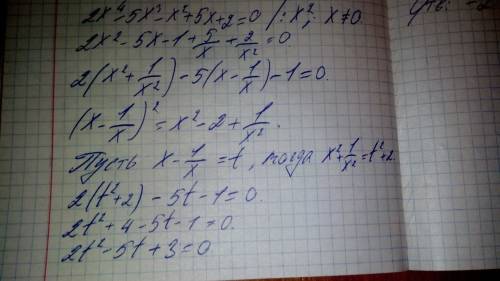 2x⁴-5x³-x²+5x+2=0 /:x²; x≠0.
2x²-5x-1+5/x+2/x²=0
2(x²+1/x²)-5(x-1/x)-1=0.
(x-1/x)²=x²-2+1/x².
Пусть x-1/x=t, тогда x²+1/x²=t²+2.
2(t²+2)-5t-1=0.
2t²+4-5t-1=0.
2t²-5t+3=0.